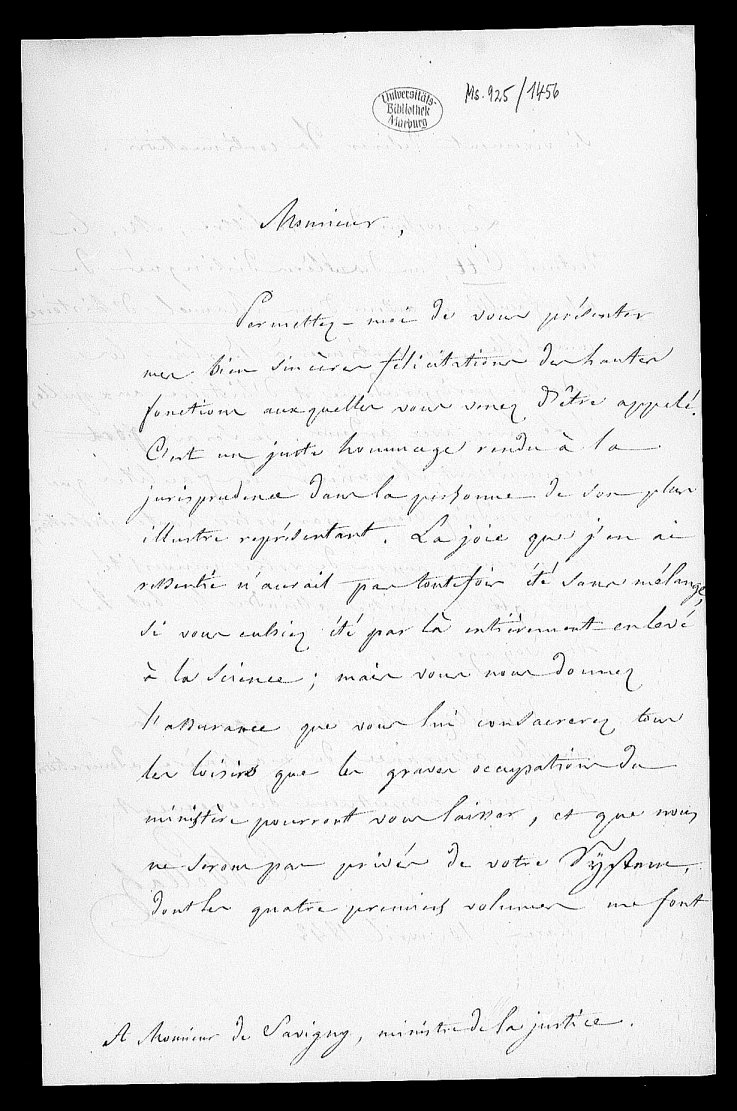 Universitäts-
Bibliothek
Marburg
Ms. 925/1456
Monsieur,
Permettez-moi de vous présenter
mes bien sincères félicitations des hautes
fonctions auxquelles vous venez d'être appelé.
C'est un juste hommage rendu à la
jurisprudence dans la personne de son plus
illustre représentant. La joie que j'en ai
ressentie n'aurait pas toutefois été sans mélange,
si vous eussiez été par là entièrement enlevé
à la science; mais vous nous donnez
l'assurance que vous lui consacrerez tous
les loisirs que les graves occupations du
ministère pourront vous laisser, et que nous
ne serons pas privés de votre System,
dont les quatre premiers volumes me font
A Monsieur de Savigny, ministre de la justice.